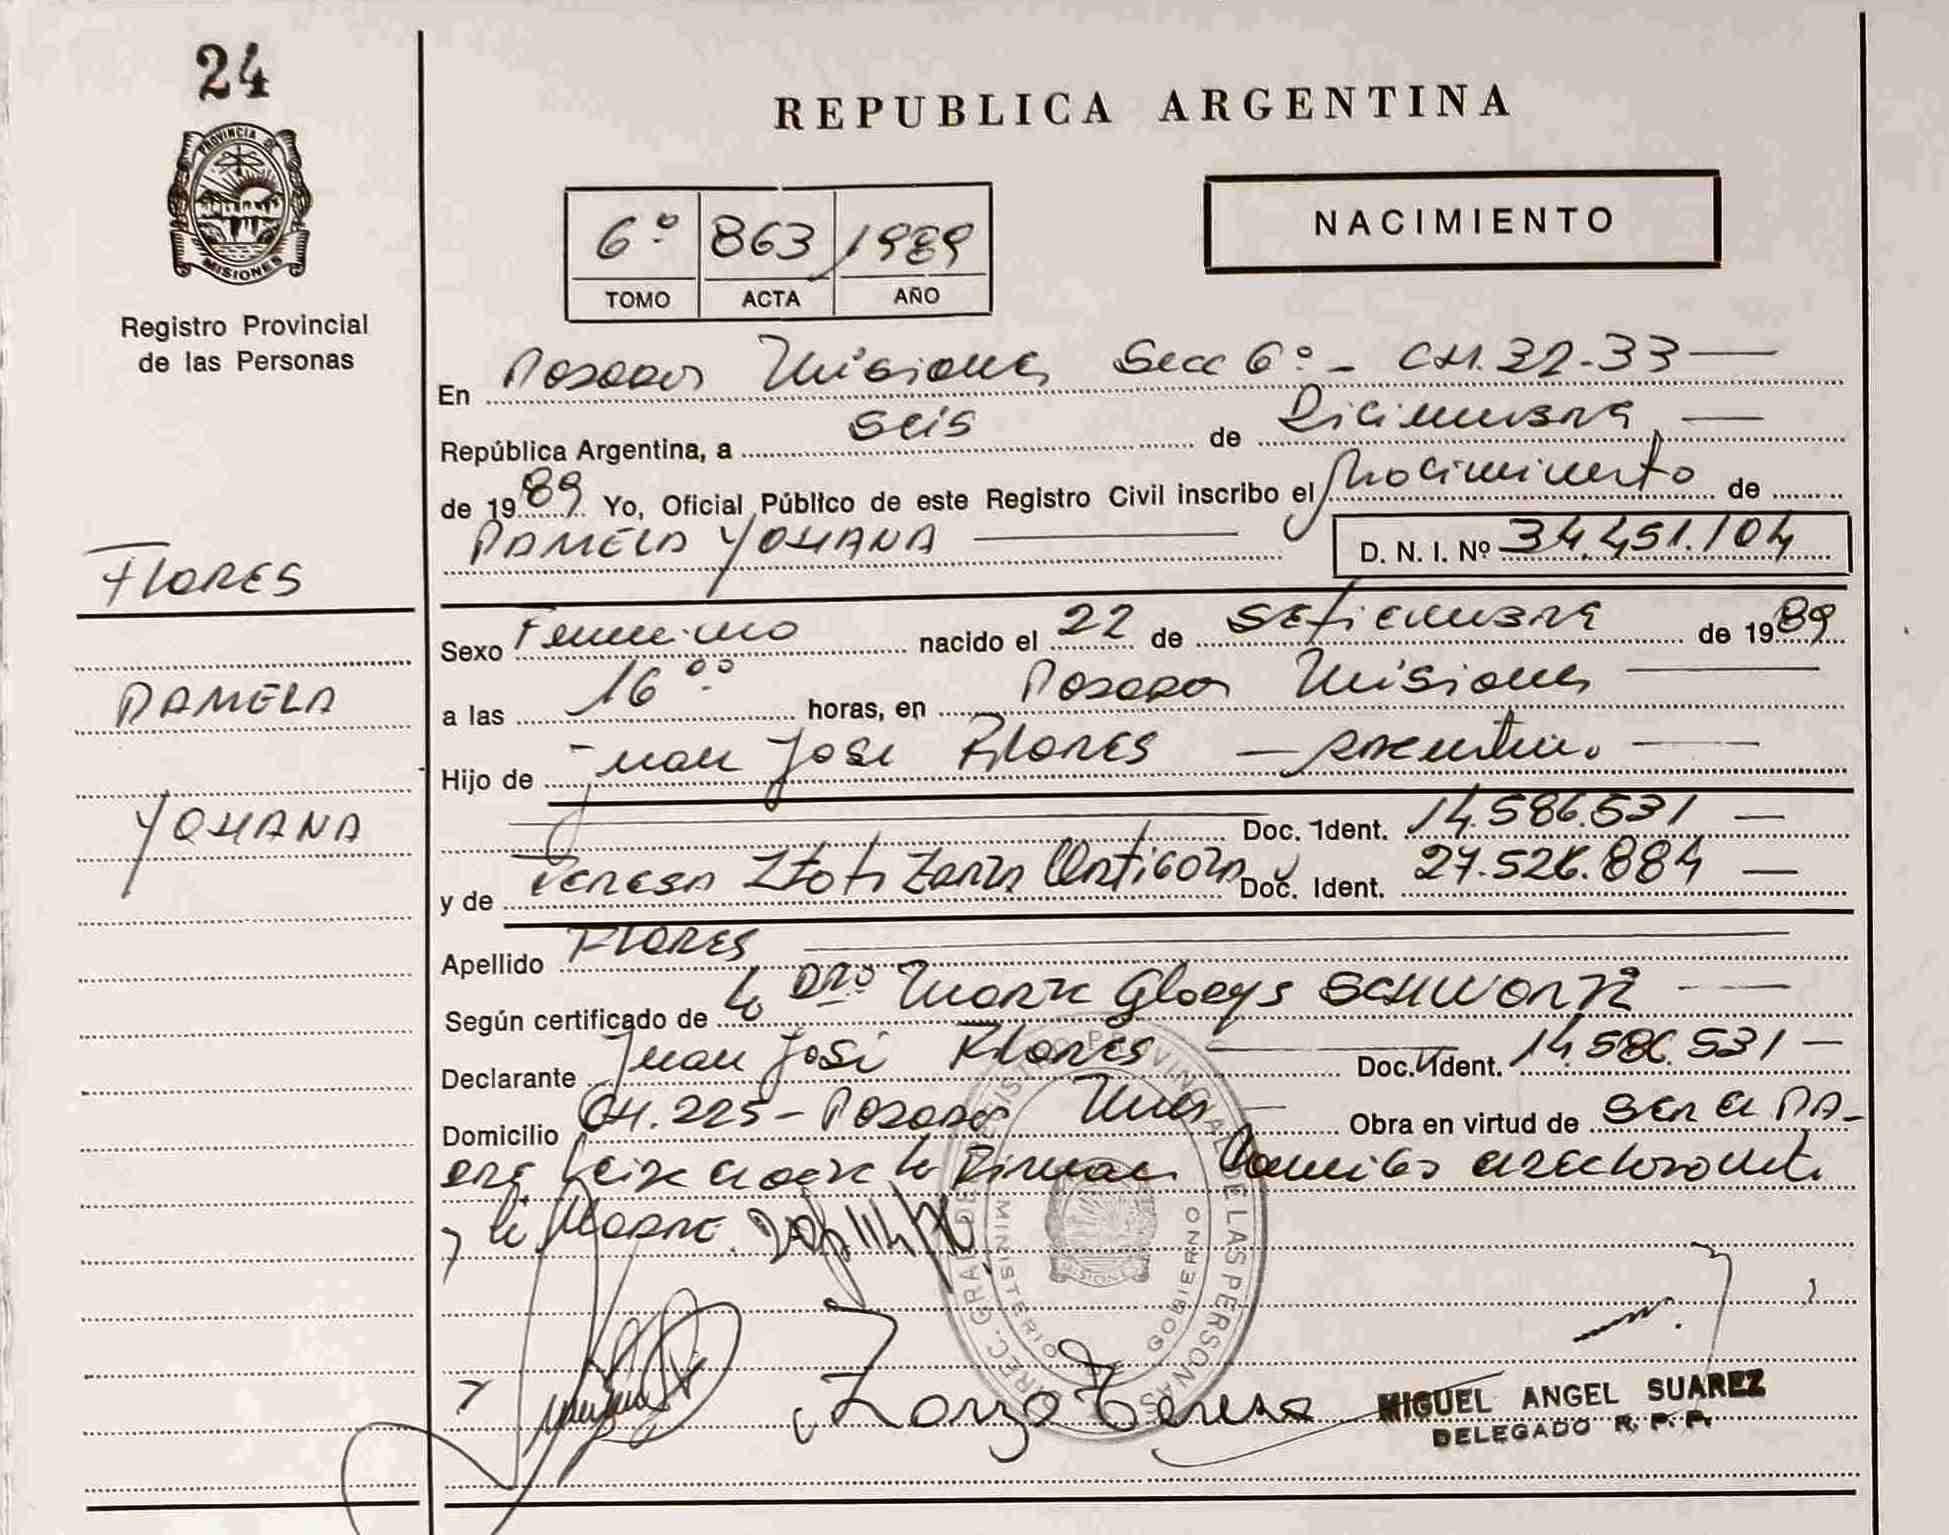 24
PROVINCIA DE
MISIONES
Registro Provincial
de las Personas
FLORES
PAMELA
YOHANA
REPUBLICA ARGENTINA
NACIMIENTO
6º 863 1989
TOMO ACTA AÑO
En Posadas Misiones Secc 6º - CH. 32-33
República Argentina, a seis de Diciembre
de 1989 Yo, Oficial Público de este Registro Civil inscribo el Nacimiento de
PAMELA YOHANA D. N. I. Nº 34.451.104
Sexo Femenino nacido el 22 de Setiembre de 1989
a las 16 ºº horas, en Posadas Misiones
Hijo de Juan José Flores - argentino
Doc. Ident. 14.586.531
y de Teresa Zarza Doc. Ident. 27.526.884
Apellido FLORES
Según certificado de la Dra Gladys
Declarante Juan José Flores Doc. Ident. 14.586.531
Domicilio CH. 225 - Posadas Mnes Obra en virtud de ser el pa-
dre
y la Madre.
DIREC. GRAL. DE REGISTRO PROVINCIAL DE LAS PERSONAS
MINISTERIO GOBIERNO
MISIONES
Zarza Teresa
MIGUEL ANGEL SUAREZ
DELEGADO R. P. P.